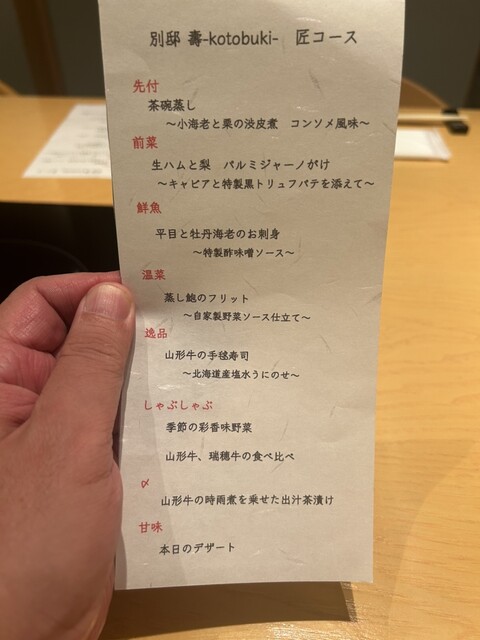 別邸 壽-kotobuki- 匠コース
先付
茶碗蒸し
～小海老と栗の渋皮煮 コンソメ風味～
前菜
生ハムと梨 パルミジャーノがけ
～キャビアと特製黒トリュフパテを添えて～
鮮魚
平目と牡丹海老のお刺身
～特製酢味噌ソース～
温菜
蒸し鮑のフリット
～自家製野菜ソース仕立て～
逸品
山形牛の手毬寿司
～北海道産塩水うにのせ～
しゃぶしゃぶ
季節の彩香味野菜
山形牛、瑞穂牛の食べ比べ
〆
山形牛の時雨煮を乗せた出汁茶漬け
甘味
本日のデザート